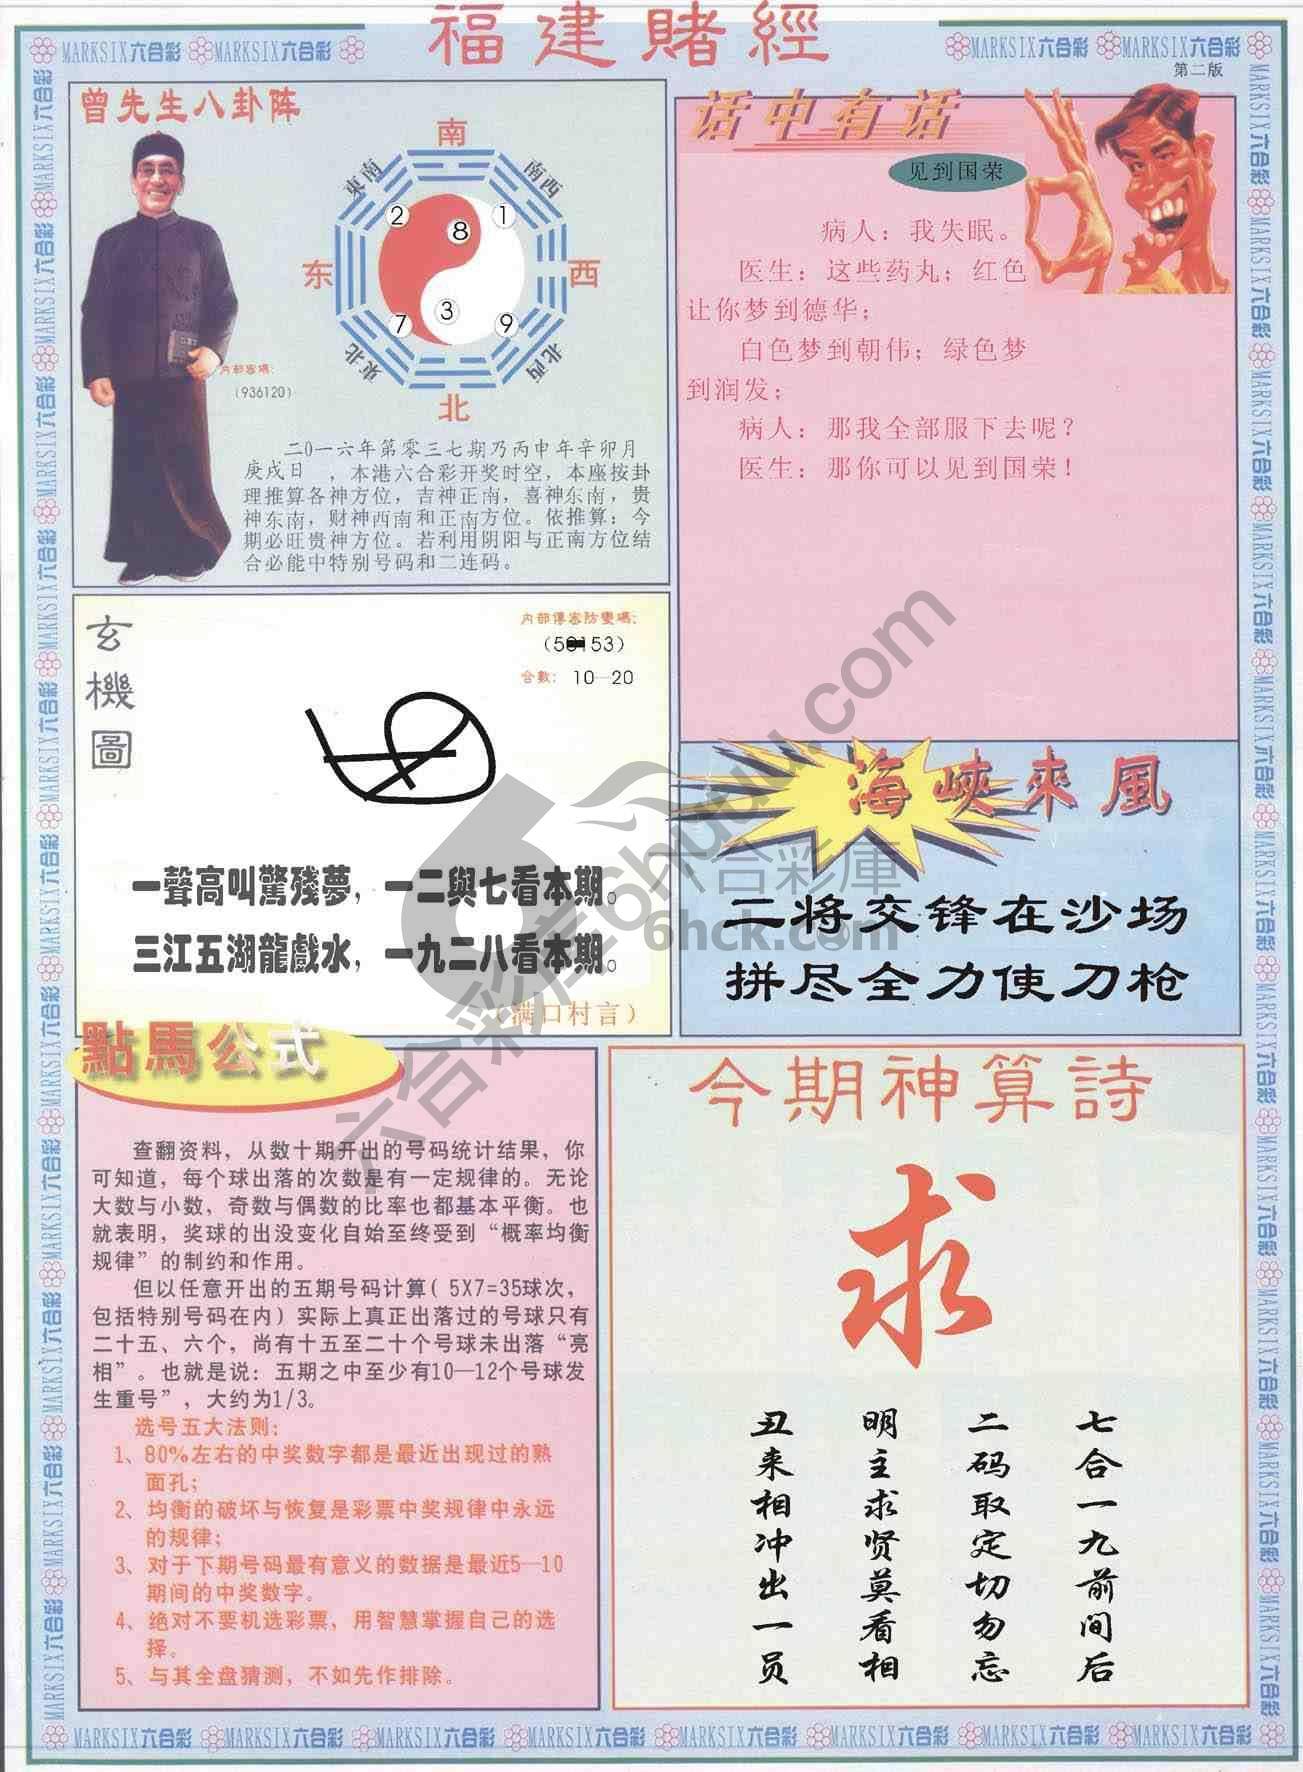 福建賭經
MARKSIX六合彩 MARKSIX六合彩
MARKSIX六合彩 MARKSIX六合彩
第二版
曾先生八卦阵
南
東南
南西
2
8
1
东
西
7
3
9
東北
北西
北
内部密碼：
（936120）
二0一六年第零三七期乃丙申年辛卯月
庚戌日 ，本港六合彩开奖时空，本座按卦
理推算各神方位，吉神正南，喜神东南，贵
神东南，财神西南和正南方位。依推算：今
期必旺贵神方位。若利用阴阳与正南方位结
合必能中特别号码和二连码。
话中有话
见到国荣
病人：我失眠。
医生：这些药丸；红色
让你梦到德华；
白色梦到朝伟；绿色梦
到润发；
病人：那我全部服下去呢？
医生：那你可以见到国荣！
玄機圖
内部傳密防變碼：
合數： 10—20
一聲高叫驚殘夢，一二與七看本期。
三江五湖龍戲水，一九二八看本期。
（满口村言）
海峽來風
二将交锋在沙场
拼尽全力使刀枪
六合彩庫
6hck.com
點馬公式
查翻资料，从数十期开出的号码统计结果，你
可知道，每个球出落的次数是有一定规律的。无论
大数与小数，奇数与偶数的比率也都基本平衡。也
就表明，奖球的出没变化自始至终受到“概率均衡
规律”的制约和作用。
但以任意开出的五期号码计算( 5X7=35球次，
包括特别号码在内）实际上真正出落过的号球只有
二十五、六个，尚有十五至二十个号球未出落“亮
相”。也就是说：五期之中至少有10—12个号球发
生重号”，大约为1/3。
选号五大法则：
1、80%左右的中奖数字都是最近出现过的熟
面孔；
2、均衡的破坏与恢复是彩票中奖规律中永远
的规律；
3、对于下期号码最有意义的数据是最近5—10
期间的中奖数字。
4、绝对不要机选彩票，用智慧掌握自己的选
择。
5、与其全盘猜测，不如先作排除。
今期神算詩
求
七合一九前间后
二码取定切勿忘
明主求贤莫看相
丑来相冲出一员
MARKSIX六合彩 MARKSIX六合彩 MARKSIX六合彩 MARKSIX六合彩 MARKSIX六合彩 MARKSIX六合彩 MARKSIX六合彩 MARKSIX六合彩